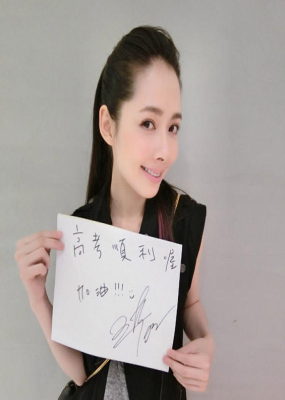 高考順利喔
加油!!!